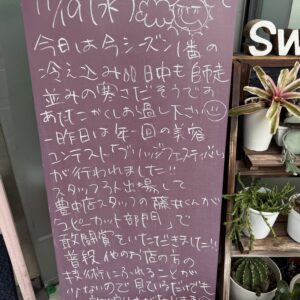 11/19(水)
今日は今シーズン1番の
冷え込み 日中も師走
並みの寒さだそうです
あたたかくしてお過し下さい
一昨日は年一回の美容
コンテスト「ブリッジフェスティバル」
が行われました!!
スタッフ3人出場して
豊中店スタッフの藤井くんが
「コピーカット部門」で
敢闘賞をいただきました!!
普段他のお店の方の
技術にふれることが
少ないので見ているだけでも
SW